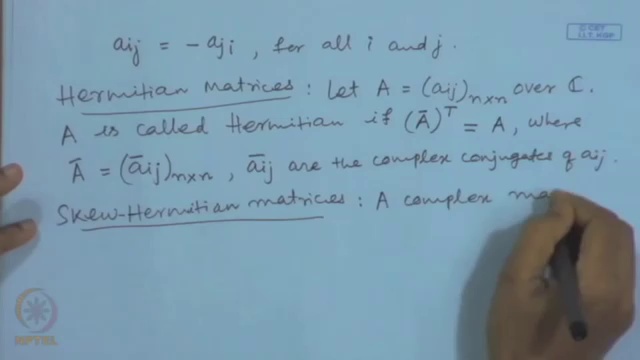 aij = - aji, for all i and j.
Hermitian Matrices : Let A = (aij)n×n over ℂ.
A is called Hermitian if (Ā)ᵀ = A, where
Ā = (āij)n×n, āij are the complex conjugates of aij.
Skew-Hermitian matrices : A complex ma
© CET
I.I.T. KGP
NPTEL